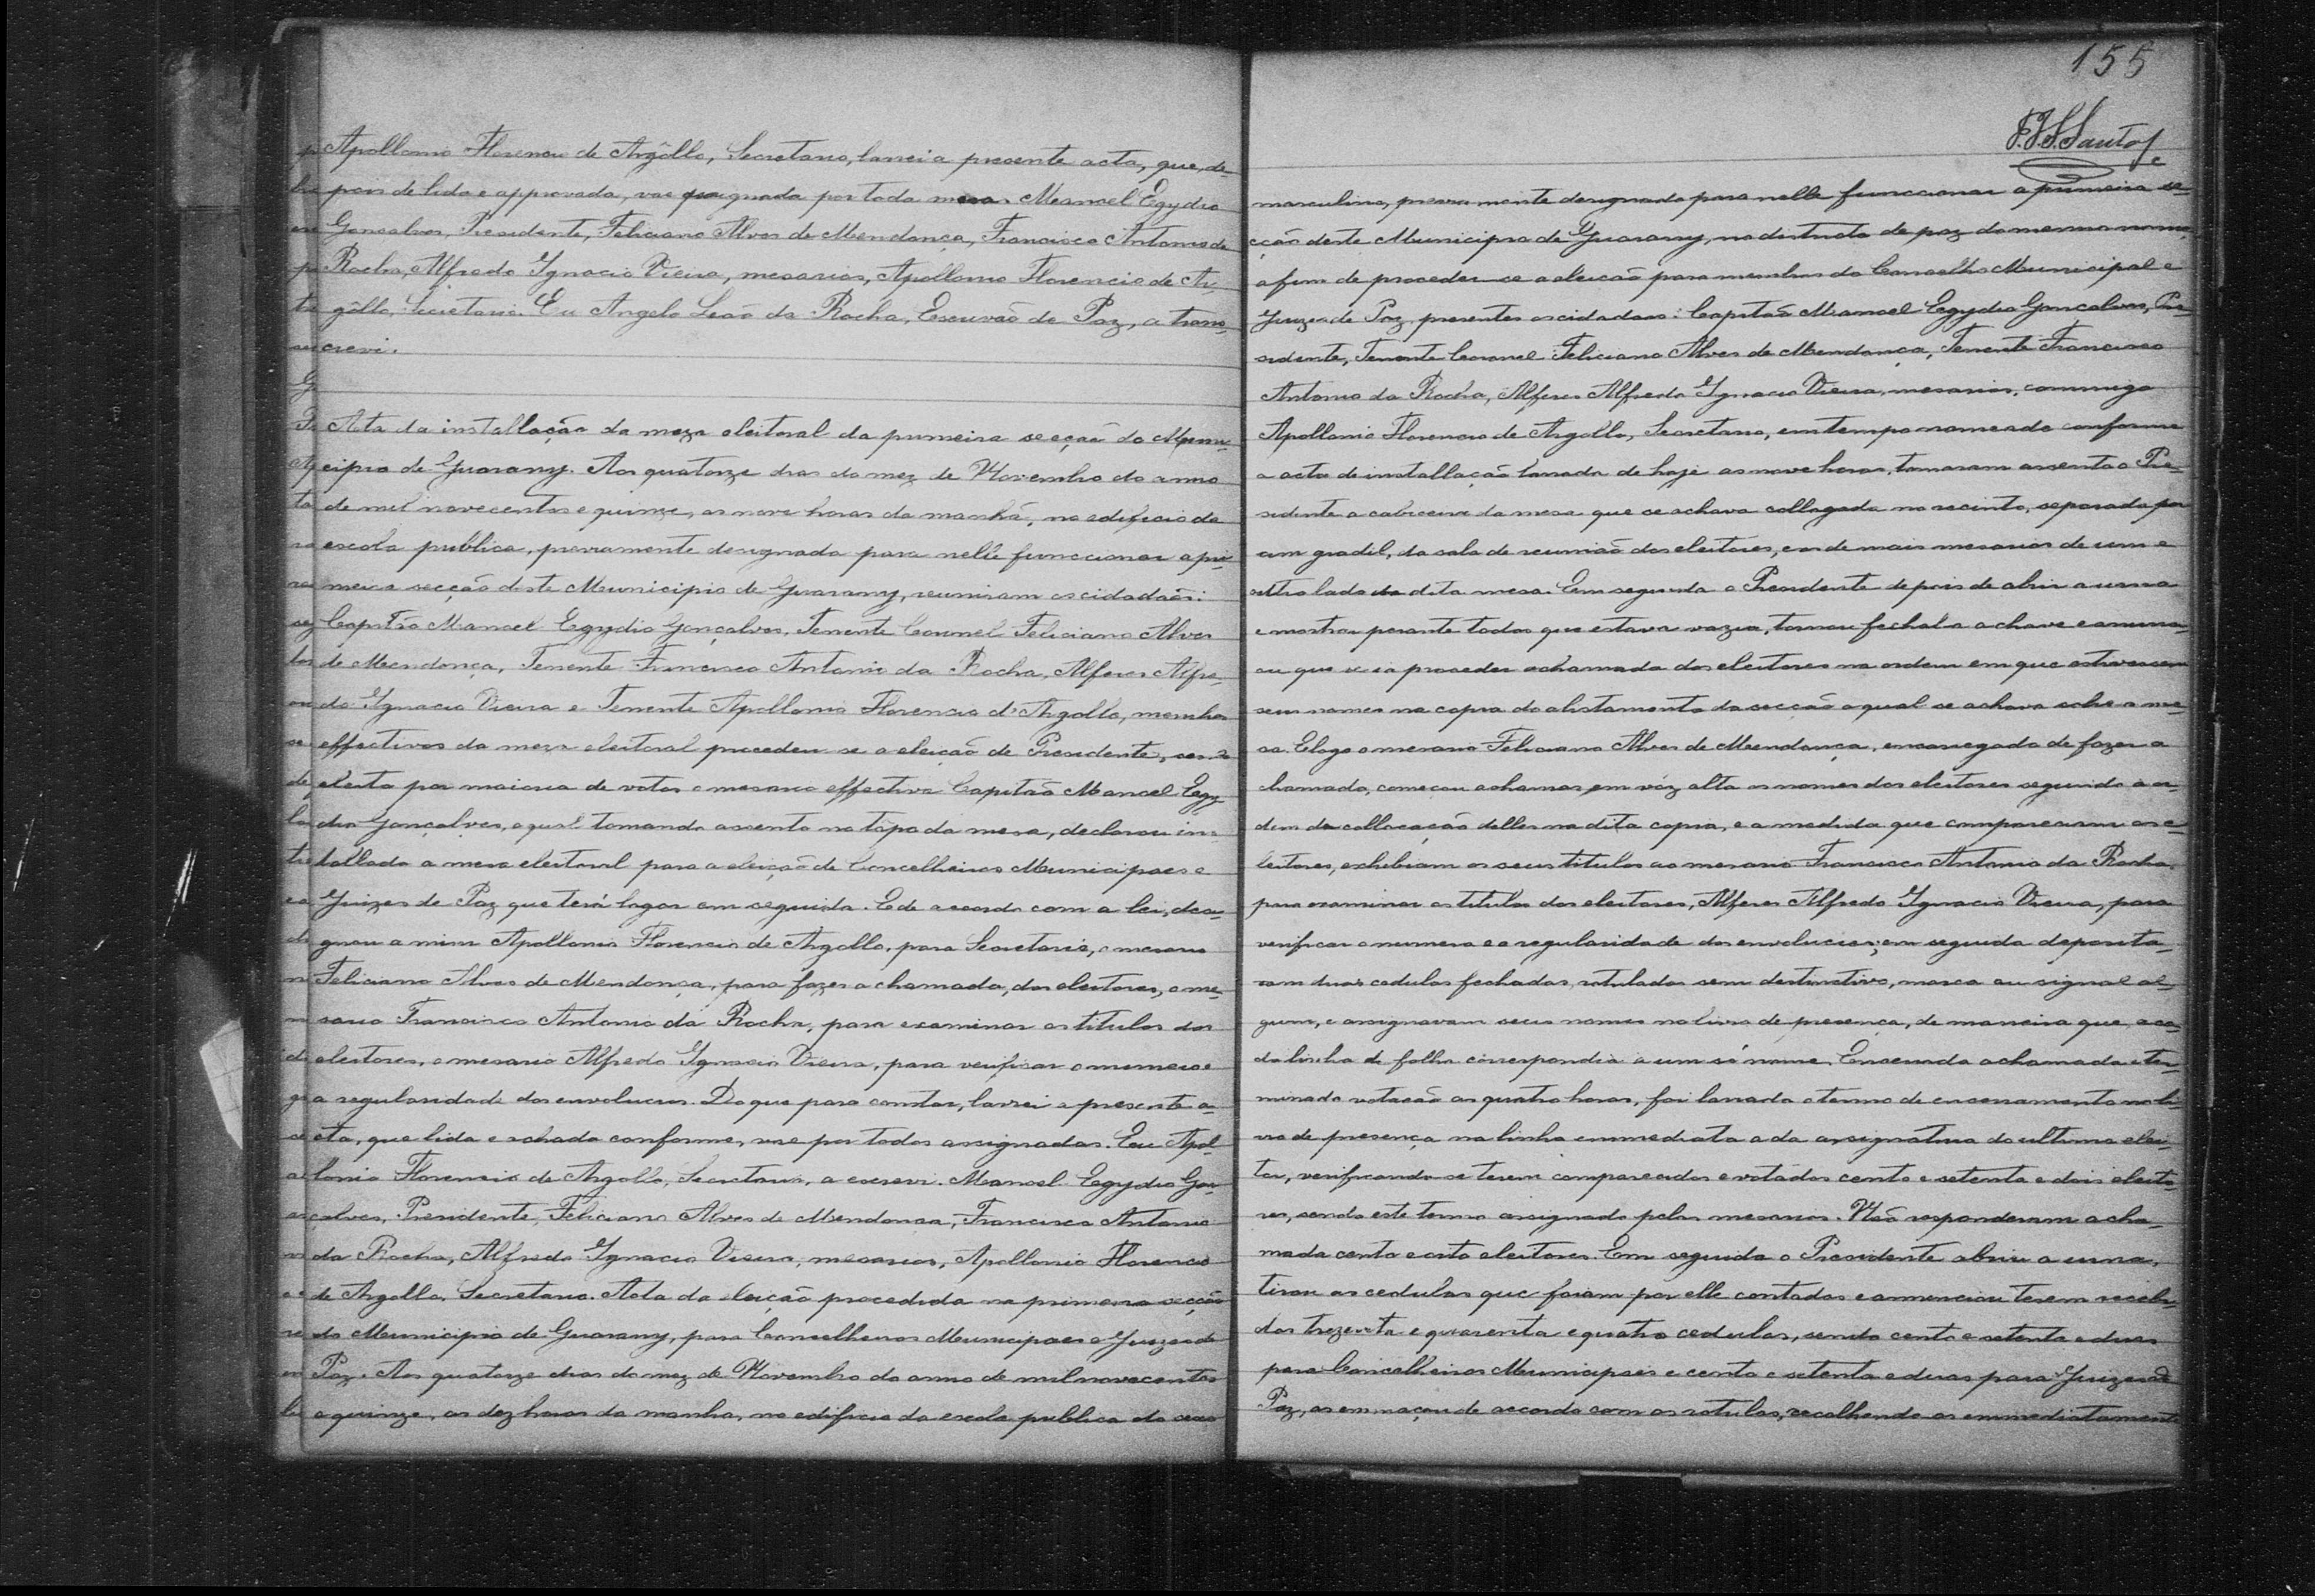 Apollonio Florencio de Argôllo, Secretario, lancei a presente acta, que, de-
pois de lida e approvada, vae assignada por toda mesa. Manoel Egydio
Gonsalves, Presidente, Feliciano Alves de Mendonça, Francisco Antonio da
Rocha, Alfredo Ygnacio Vieira, mesarios, Apollonio Florencio de Ar-
gôllo, Secretario. Eu Angelo Leão da Rocha, Escrivão de Paz, a trans-
crevi.
Acta da installação da meza eleitoral da primeira secção do Muni-
cipio de Guarany. Aos quatorze dias do mez de Novembro do anno
de mil novecentos e quinze, as nove horas da manhã, no edificio da
escola publica, previamente designada para nelle funccionar a pri-
meira secção deste Municipio de Guarany, reuniram os cidadãos:
Capitão Manoel Egydio Gonçalves, Tenente Coronel Feliciano Alves
de Mendonça, Tenente Francisco Antonio da Rocha, Alferes Alfre-
do Ygnacio Vieira e Tenente Apollonio Florencio d'Argollo, membros
effectivos da meza eleitoral procedeu se a eleição de Presidente, sendo
eleito por maioria de votos o mesario effectivo Capitão Manoel Egy-
dio Gonçalves, o qual tomando assento no tôpo da mesa, declarou ins-
tallada a mesa eleitoral para a eleição de Concelheiros Municipaes e
Juizes de Paz que terá logar em seguida. E de accordo com a lei, desi-
gnou a mim Apollonio Florencio de Argollo, para Secretario, o mesario
Feliciano Alves de Mendonça, para fazer a chamada, dos eleitores, o me-
sario Francisco Antonio da Rocha, para examinar os titulos dos
eleitores, o mesario Alfredo Ygnacio Vieira, para verificar o numero e
a regularidade dos envolucros. Do que para constar, lavrei a presente a-
cta, que lida e achada conforme, vae por todos assignadas. Eu Apol-
lonio Florencio de Argollo, Secretario, a escrevi. Manoel Egydio Gon-
çalves, Presidente, Feliciano Alves de Mendonça, Francisco Antonio
da Rocha, Alfredo Ygnacio Vieira, mesarios, Apollonio Florencio
de Argollo, Secretario. Acta da eleição procedida na primeira secção
do Municipio de Guarany, para Conselheiros Municipaes e Juizes de
Paz. Aos quatorze dias do mez de Novembro do anno de mil novecentos
e quinze, as dez horas da manha, no edificio da escola publica do sexo
155
F.J.S.Santos
masculino, previamente designado para nelle funccionar a primeira se-
cção deste Municipio de Guarany, no districto de paz do mesmo nome,
afim de proceder se a eleição para membros do Conselho Municipal e
Juizes de Paz, presentes os cidadaos: Capitão Manoel Egydio Gonçalves, Pre-
sidente, Tenente Coronel Feliciano Alves de Mendonça, Tenente Francisco
Antonio da Rocha, Alferes Alfredo Ygnacio Vieira, mesarios, commigo
Apollonio Florencio de Argollo, Secretario, em tempo nomeado conforme
a acta de installação lavrada de hoje as nove horas, tomaram assento o Pre-
sidente a cabeceira da mesa que se achava collogada no recinto, separada por
um gradil, da sala de reunião dos eleitores, e os demais mesarios de um e
outro lado da dita mesa. Em seguida o Presidente depois de abrir a urna
e mostrou perante todos que estava vazia, tornou fechal-a a chave e annunci-
ou que se ia proceder a chamada dos eleitores na ordem em que estivessem
seus nomes na copia do alistamento da secção a qual se achava sobre a me-
sa. E logo o mesario Feliciano Alves de Mendonça, encarregado de fazer a
chamada, começou a chamar, em vóz alta os nomes dos eleitores segundo a or-
dem da collocação delles na dita copia, e a medida que compareciam os e-
leitores, exhibiam os seus titulos ao mesario Francisco Antonio da Rocha,
para examinar os titulos dos eleitores, Alferes Alfredo Ygnacio Vieira, para
verificar o numero e a regularidade dos envolucros; em seguida deposita-
vam duas cedulas fechadas, rotuladas sem destinctivo, marca ou signal al-
gum, e assignavam seus nomes no livro de presença, de maneira que, a ca-
da linha de folha correspondia a um só nome. Encerrada a chamada e ter-
minada votação as quatro horas, foi lavrado o termo de encerramento no li-
vro de presença na linha immediata a da assignatura do ultimo elei-
tor, verificando se terem comparecidos e votados cento e setenta e dois eleito-
res, sendo este termo assignado pelos mesarios. Não responderam a cha-
mada cento e oito eleitores. Em seguida o Presidente abriu a urna,
tirou as cedulas que foram por elle contadas e annunciou terem recebi-
das trezenta e quarenta e quatro cedulas, sendo cento e setenta e duas
para Concelheiros Municipaes e cento e setenta e duas para Juizes de
Paz, as emmaçou de accordo com os rotulos, recolhendo as immediatamente